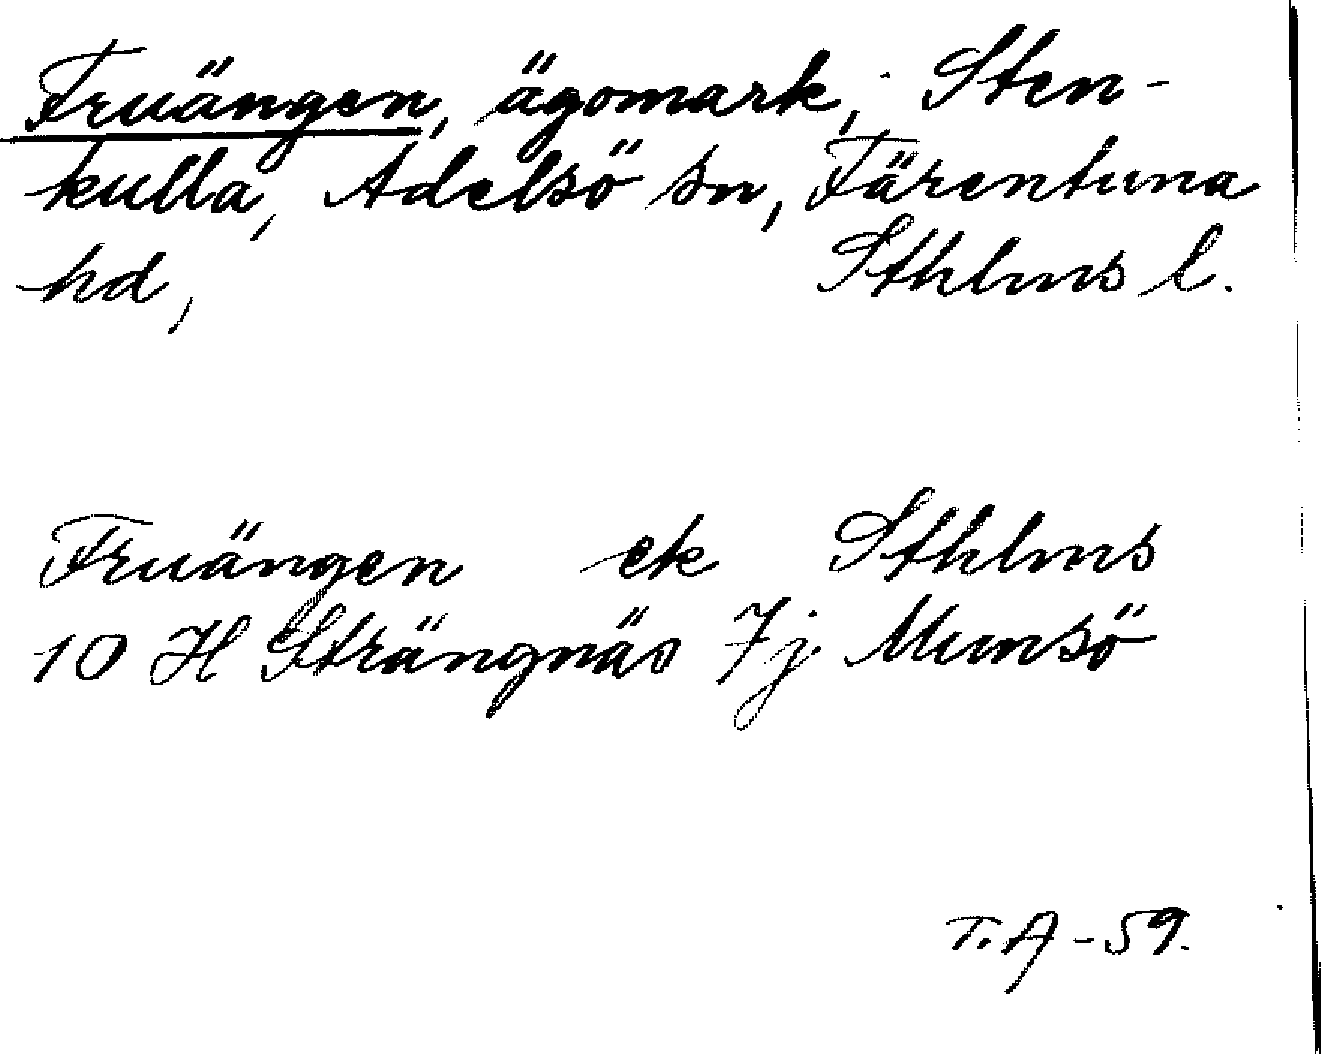 Fruängen, ägomark, Sten-
kulla, Adelsö sn, Färentuna
hd, Sthlms l.
Fruängen ek Sthlms
10 H Strängnäs 7j Munsö
T.A -59.